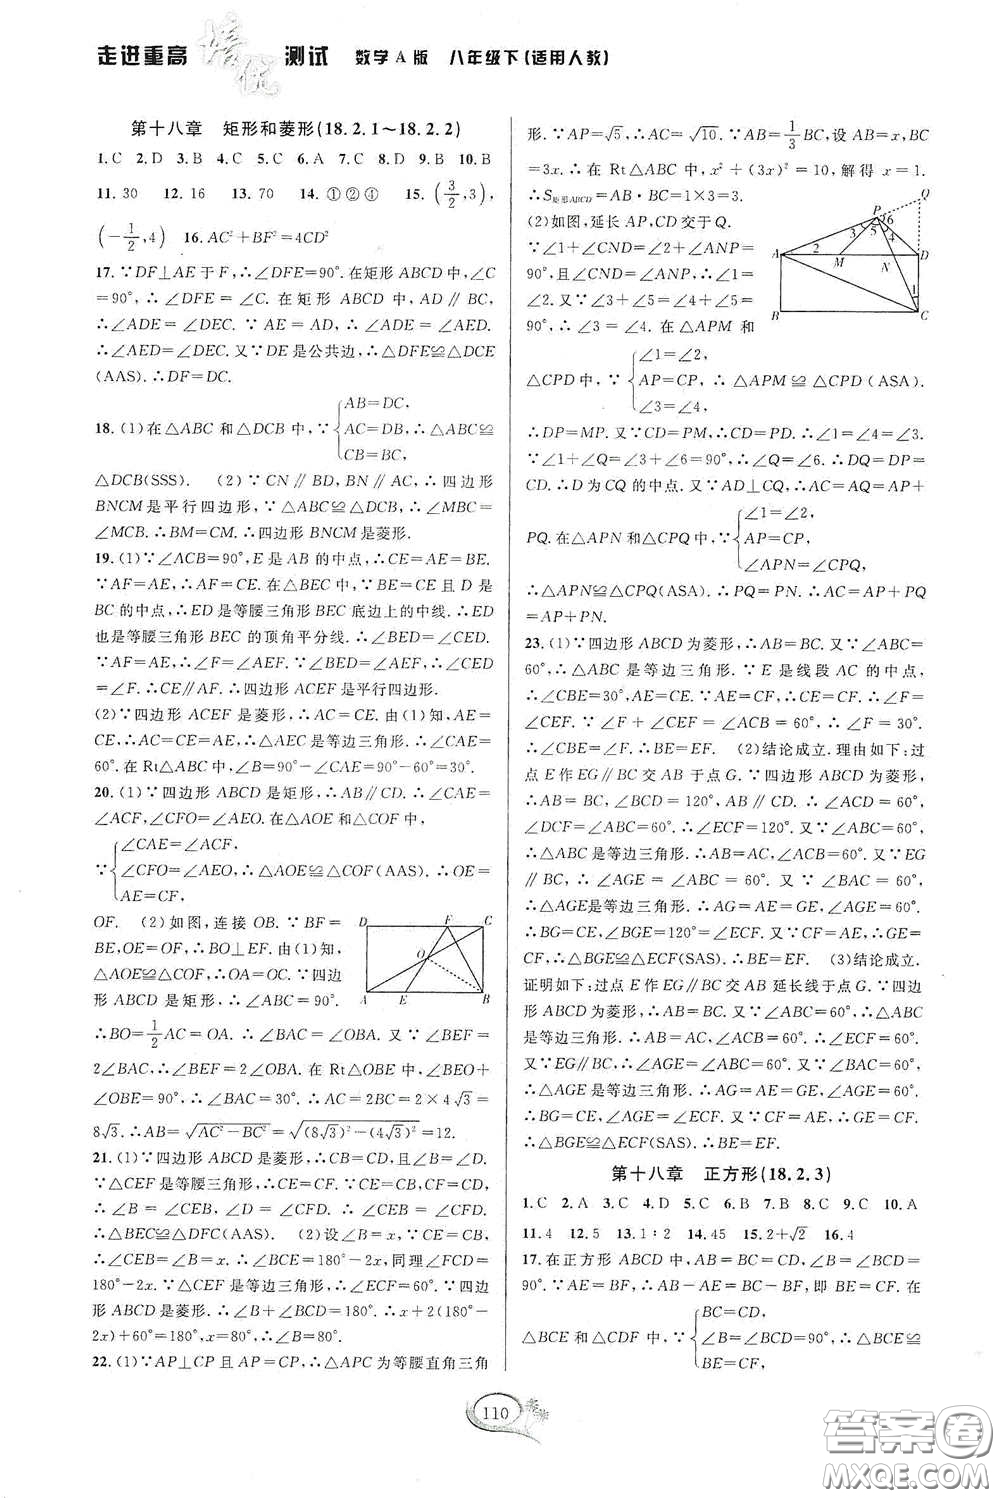 走进重高 培优 测试 数学 A 版 八年级下(适用人教)
第十八章 矩形和菱形(18.2.1～18.2.2)
1.C 2.D 3.B 4.C 5.C 6.A 7.C 8.D 9.B 10.B
11.30 12.16 13.70 14.①②④ 15.(3/2,3),
(-1/2,4) 16.AC²+BF²=4CD²
17.∵DF⊥AE于F,∴∠DFE=90°.在矩形ABCD中,∠C
=90°,∴∠DFE=∠C.在矩形ABCD中,AD∥BC,
∴∠ADE=∠DEC.∵AE=AD,∴∠ADE=∠AED.
∴∠AED=∠DEC.又∵DE是公共边,∴△DFE≌△DCE
(AAS).∴DF=DC.
AB=DC,
18.(1)在△ABC和△DCB中,∵{AC=DB,∴△ABC≌
CB=BC,
△DCB(SSS). (2)∵CN∥BD,BN∥AC,∴四边形
BNCM是平行四边形,∵△ABC≌△DCB,∴∠MBC=
∠MCB.∴BM=CM.∴四边形BNCM是菱形.
19.(1)∵∠ACB=90°,E是AB的中点,∴CE=AE=BE.
∵AF=AE,∴AF=CE.在△BEC中,∵BE=CE且D是
BC的中点,∴ED是等腰三角形BEC底边上的中线.∴ED
也是等腰三角形BEC的顶角平分线.∴∠BED=∠CED.
∵AF=AE,∴∠F=∠AEF.∵∠BED=∠AEF,∴∠CED
=∠F.∴CE∥AF.∴四边形ACEF是平行四边形.
(2)∵四边形ACEF是菱形,∴AC=CE.由(1)知,AE=CE,
∴AC=CE=AE,∴△AEC是等边三角形.∴∠CAE=
60°.在Rt△ABC中,∠B=90°-∠CAE=90°-60°=30°.
20.(1)∵四边形ABCD是矩形,∴AB∥CD.∴∠CAE=
∠ACF,∠CFO=∠AEO.在△AOE和△COF中,
∠CAE=∠ACF,
∵{∠CFO=∠AEO,∴△AOE≌△COF(AAS).∴OE=
AE=CF,
OF. (2)如图,连接OB.∵BF=
BE,OE=OF,∴BO⊥EF.由(1)知,
△AOE≌△COF,∴OA=OC.∵四边
形ABCD是矩形,∴∠ABC=90°.
∴BO=1/2AC=OA.∴∠BAC=∠OBA.又∵∠BEF=
2∠BAC,∴∠BEF=2∠OBA.在Rt△OBE中,∠BEO+
∠OBE=90°,∴∠BAC=30°.∴AC=2BC=2×4√3=
8√3.∴AB=√AC²-BC²=√(8√3)²-(4√3)²=12.
21.(1)∵四边形ABCD是菱形,∴CB=CD,且∠B=∠D.
∵△CEF是等边三角形,∴CE=CF.∵CB=CE,CD=CF,
∴∠B=∠CEB,∠D=∠CFD.∴∠CEB=∠CFD.
∴△BEC≌△DFC(AAS). (2)设∠B=x.∵CE=CB,
∴∠CEB=∠B=x.∴∠BCE=180°-2x,同理∠FCD=
180°-2x.∵△CEF是等边三角形,∴∠ECF=60°.∵四边
形ABCD是菱形.∴∠B+∠BCD=180°.∴x+2(180°-
2x)+60°=180°,x=80°,∴∠B=80°.
22.(1)∵AP⊥CP且AP=CP,∴△APC为等腰直角三角
形.∵AP=√5,∴AC=√10.∵AB=1/3BC,设AB=x,BC
=3x.∴在Rt△ABC中,x²+(3x)²=10,解得x=1.
∴S矩形ABCD=AB·BC=1×3=3.
(2)如图,延长AP,CD交于Q.
∵∠1+∠CND=∠2+∠ANP=
90°,且∠CND=∠ANP,∴∠1=
∠2.又∵∠3+∠5=∠4+∠5=
90°,∴∠3=∠4.在△APM和
∠1=∠2,
△CPD中,∵{AP=CP,∴△APM≌△CPD(ASA).
∠3=∠4,
∴DP=MP.又∵CD=PM,∴CD=PD.∴∠1=∠4=∠3.
∵∠1+∠Q=∠3+∠6=90°,∴∠Q=∠6.∴DQ=DP=
CD.∴D为CQ的中点.又∵AD⊥CQ,∴AC=AQ=AP+
∠1=∠2,
PQ.在△APN和△CPQ中,∵{AP=CP,
∠APN=∠CPQ,
∴△APN≌△CPQ(ASA).∴PQ=PN.∴AC=AP+PQ
=AP+PN.
23.(1)∵四边形ABCD为菱形,∴AB=BC.又∵∠ABC=
60°,∴△ABC是等边三角形.∵E是线段AC的中点,
∴∠CBE=30°,AE=CE.∵AE=CF,∴CE=CF.∴∠F=
∠CEF.∵∠F+∠CEF=∠ACB=60°,∴∠F=30°.
∴∠CBE=∠F.∴BE=EF. (2)结论成立.理由如下:过
点E作EG∥BC交AB于点G.∵四边形ABCD为菱形,
∴AB=BC,∠BCD=120°,AB∥CD.∴∠ACD=60°,
∠DCF=∠ABC=60°.∴∠ECF=120°.又∵∠ABC=60°,
∴△ABC是等边三角形.∴AB=AC,∠ACB=60°.又∵EG
∥BC,∴∠AGE=∠ABC=60°.又∵∠BAC=60°,
∴△AGE是等边三角形.∴AG=AE=GE,∠AGE=60°.
∴BG=CE,∠BGE=120°=∠ECF.又∵CF=AE,∴GE=
CF.∴△BGE≌△ECF(SAS).∴BE=EF. (3)结论成立.
证明如下:过点E作EG∥BC交AB延长线于点G.∵四边
形ABCD为菱形,∴AB=BC.又∵∠ABC=60°,∴△ABC
是等边三角形.∴AB=AC,∠ACB=60°.∴∠ECF=60°.
又∵EG∥BC,∴∠AGE=∠ABC=60°.又∵∠BAC=60°,
∴△AGE是等边三角形.∴AG=AE=GE,∠AGE=60°.
∴BG=CE,∠AGE=∠ECF.又∵CF=AE,∴GE=CF.
∴△BGE≌△ECF(SAS).∴BE=EF.
第十八章 正方形(18.2.3)
1.C 2.A 3.C 4.D 5.C 6.B 7.B 8.C 9.C 10.A
11.4 12.5 13.1∶2 14.45 15.2+√2 16.4
17.在正方形ABCD中,AB=BC=CD,∠ABC=∠BCD=
90°.∵AE=BF,∴AB-AE=BC-BF,即BE=CF.在
BC=CD,
△BCE和△CDF中,∵{∠B=∠BCD=90°,∴△BCE≌
BE=CF,
D F C
O
A E B
Q
P
6
3 5 4
2
A M N D
1
B C
110
答案圈
MXQE.COM